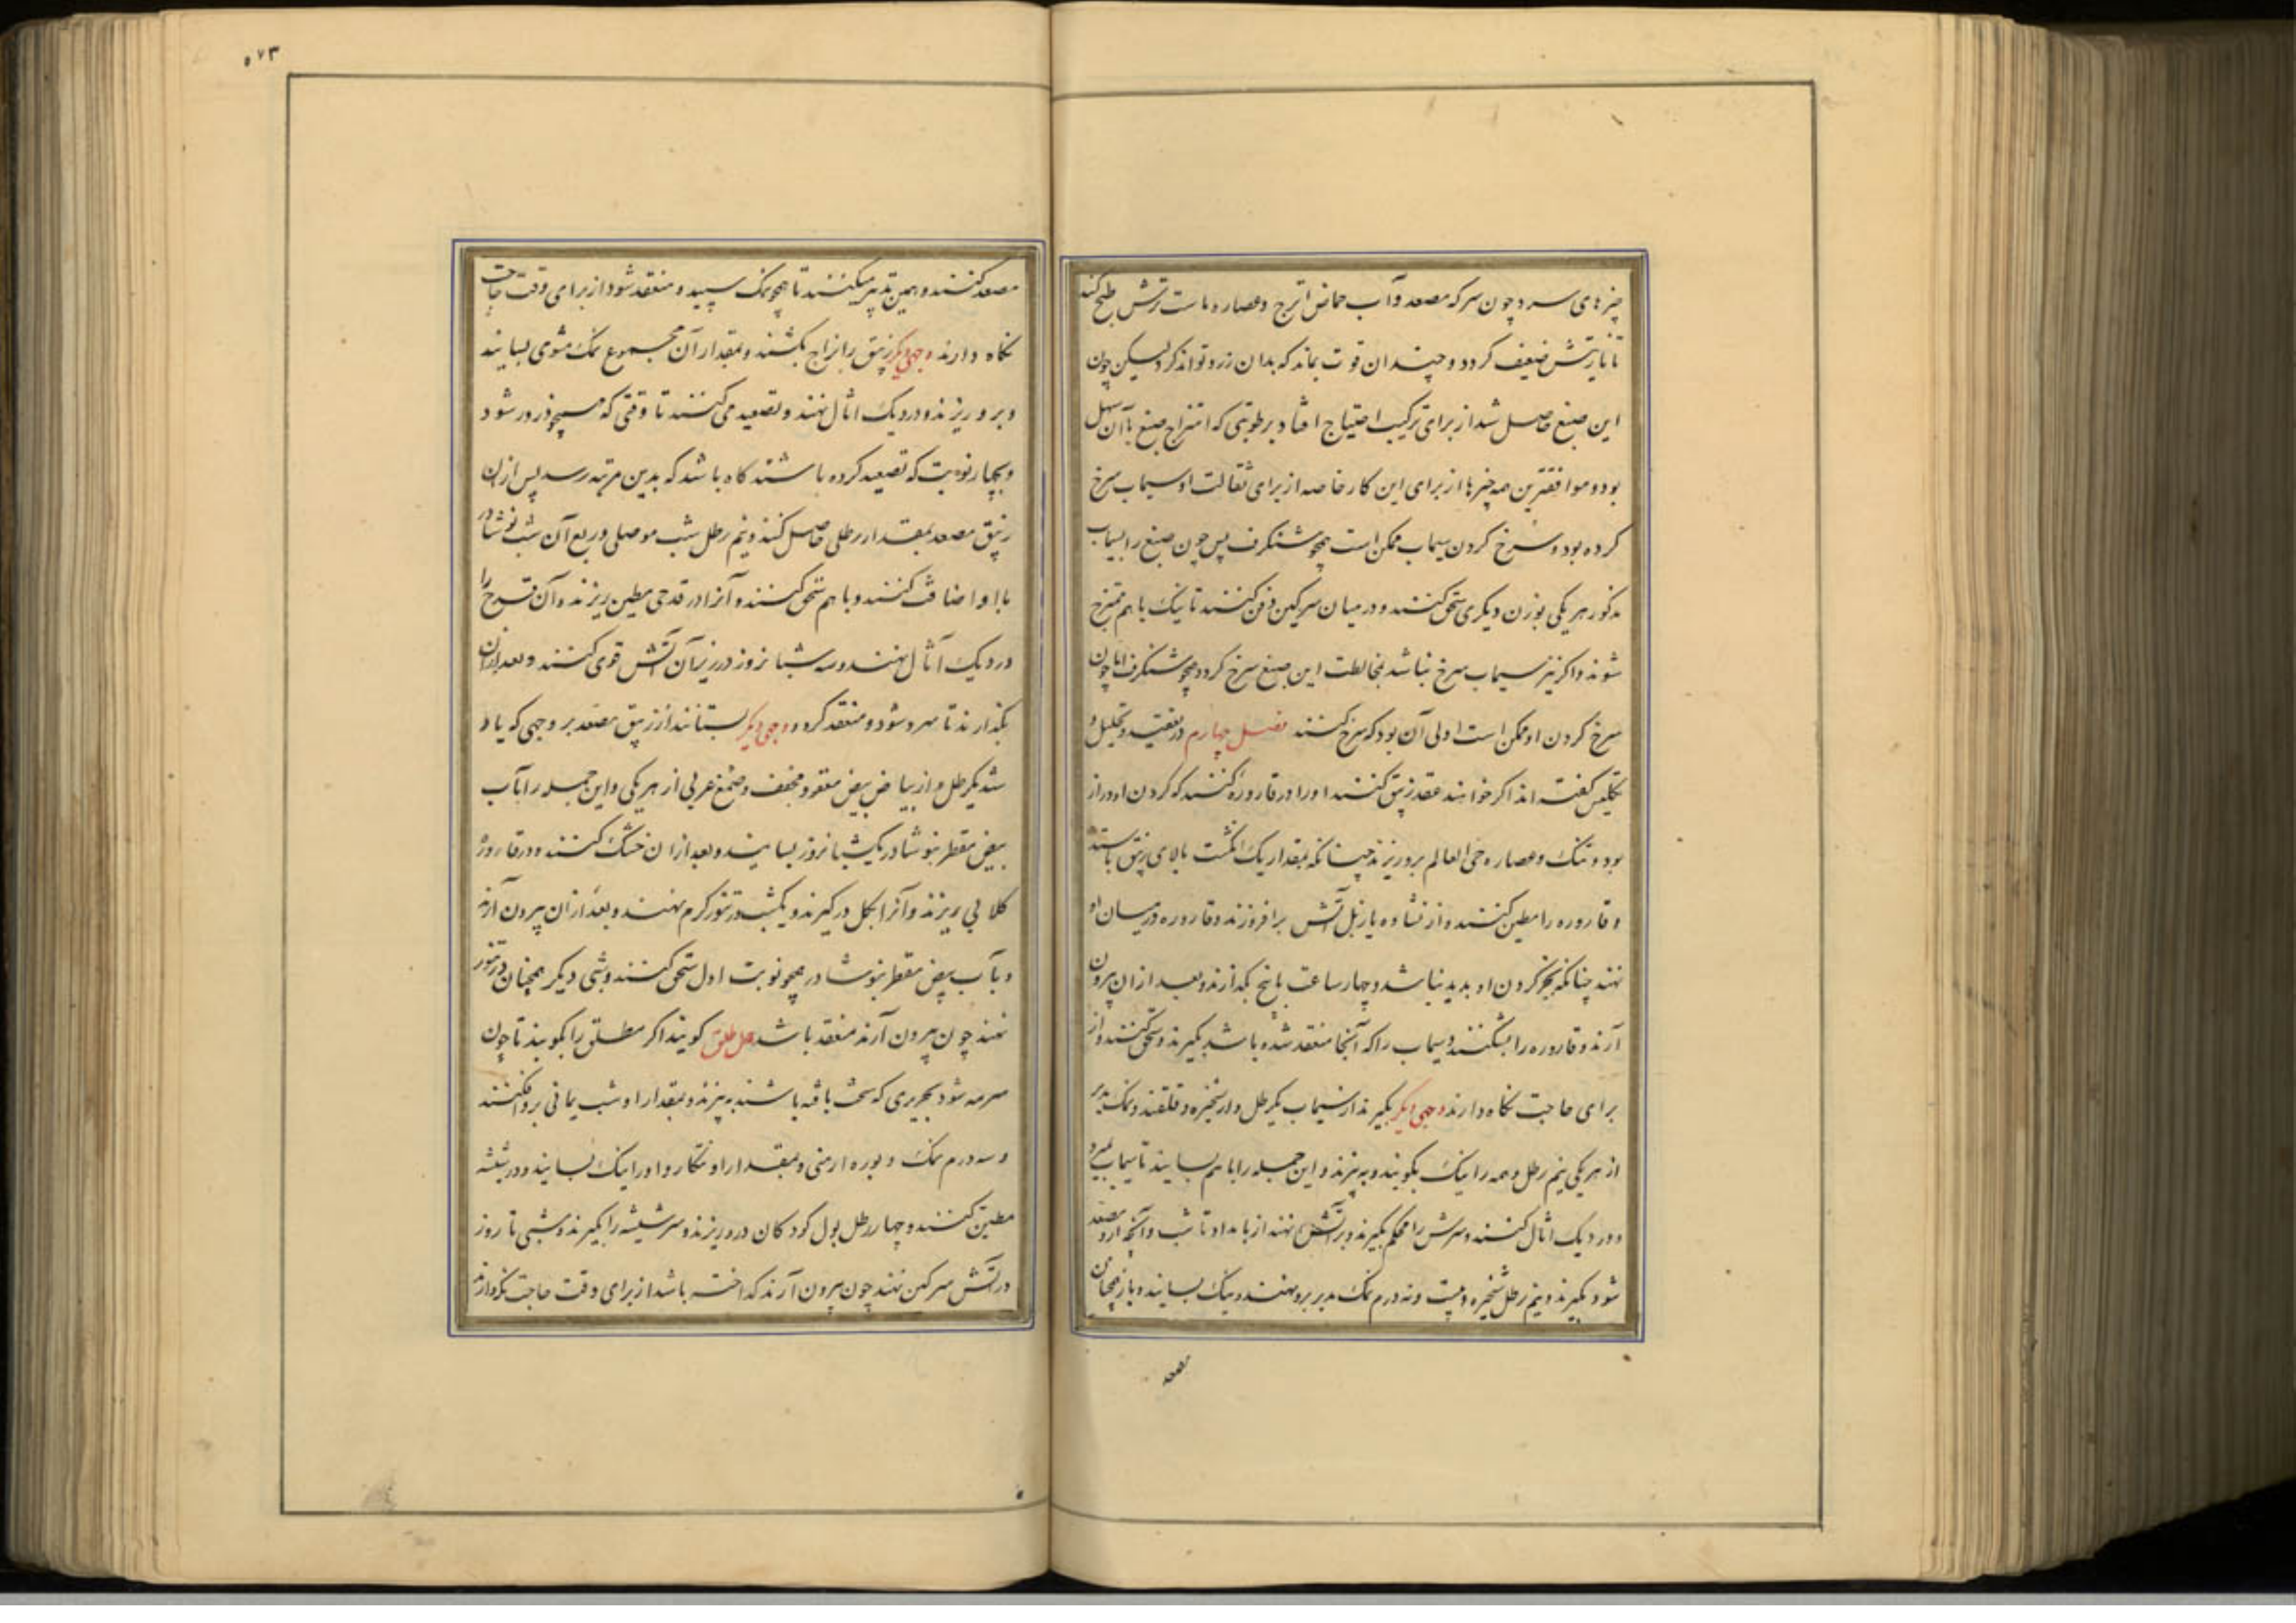 چیزهای سرد چون سرکه مصعد و آب حماض اترج و عصاره ماست ترش طبخ کنند
تا نارتش ضعیف کردد و چندان قوت بماند که بدان زرد تواند کرد لیکن چون
این صبغ حاصل شد از برای ترکیب احتیاج افتاد برطوبتی که امتزاج صبغ با آن سهل
بود و موافقترین همه چیزها از برای این کار خاصه از برای ثقالت او سیماب سرخ
کرده بود و سرخ کردن سیماب ممکن است همچو شنکرف پس چون صبغ را بسیماب
مذکور هر یکی بوزن دیکری سحق کنند و در میان سرکین دفن کنند تا نیک با هم ممتزج
شوند و اکر نیز سیماب سرخ نباشد بمخالطت این صبغ سرخ کردد همچو شنکرف اما چون
سرخ کردن او ممکن است اولی آن بود که سرخ کنند فصل چهارم در تعقید و تحلیل و
تکلیس کفته اند اکر خواهند عقد زیبق کنند او را در قاروره کنند که کردن او دراز
بود و تنک و عصاره حی العالم برو ریزند چنانکه بمقدار یک انکشت بالای زیبق باستد
و قاروره را مطین کنند و از نشاره یا زبل آتش برافروزند و قاروره در میان او
نهند چنانکه بجز کردن او بدید نباشد و چهار ساعت یا پنج بکذارند و بعد از ان بیرون
آرند و قاروره را بشکنند و سیماب را که آنجا منعقد شده باشد بکیرند و سحق کنند و از
برای حاجت نکاه دارند وجهی دیکر بکیرند از سیماب یکرطل و از شخیره و قلقند و نمک مدبر
از هر یکی نیم رطل و همه را نیک بکوبند و ببیزند و این جمله را با هم بسایند تا سیماب بمیرد
و در دیک اثال کنند و سرش را محکم بکیرند و بر آتش نهند از بامداد تا شب و آنچه ازو مصعد
شود بکیرند و نیم رطل شخیره و بیست و نه درم نمک مدبر برو نهند و نیک بسایند و باز همچنان
مصعد
۵۷۳
مصعد کنند و همین تدبیر میکنند تا همچو نمک سپید و منعقد شود از برای وقت حاجت
نکاه دارند وجهی دیکر زیبق را بزاج بکشند و بمقدار آن مجموع نمک مشوی بسایند
و برو ریزند و در دیک اثال نهند و تصعید می کنند تا وقتی که همچو ذرور شود
و بچهار نوبت که تصعید کرده باشند کاه باشد که بدین مرتبه رسد پس از ان
زیبق مصعد بمقدار رطلی حاصل کنند و نیم رطل شب موصلی و ربع آن شب نوشادر
با او اضافت کنند و با هم سحق کنند و آنرا در قدحی مطین ریزند و آن قدح را
در دیک آثال نهند و سه شبانروز در زیر آن آتش قوی کنند و بعد از ان
بکذارند تا سرد شود و منعقد کردد وجهی دیکر بستانند از زیبق مصعد بر وجهی که یاد
شد یکرطل و از بیاض بیض معقود مجفف و صمغ عربی از هر یکی و این جمله را بآب
بیض مقطر بنوشادر یک شبانروز بسایند و بعد از ان خشک کنند و در قاروره
کلابی ریزند و آنرا بکل در کیرند و یکشب در تنور کرم نهند و بعد از ان بیرون آرند
و بآب بیض مقطر بنوشادر همچو نوبت اول سحق کنند و شبی دیکر همچنان در تنور
نهند چون بیرون آرند منعقد باشد حل طلق کویند اکر مطلق را بکوبند تا چون
سرمه شود بحریری که سخت بافته باشند ببیزند و بمقدار او شب یمانی برو افکنند
و سه درم نمک و بوره ارمنی و بمقدار او تنکار و او را نیک بسایند و در شیشه
مطین کنند و چهار رطل بول کودکان درو ریزند و سر شیشه را بکیرند و شبی تا روز
در آتش سرکین نهند چون بیرون آرند کداخته باشد از برای وقت حاجت نکه دارند